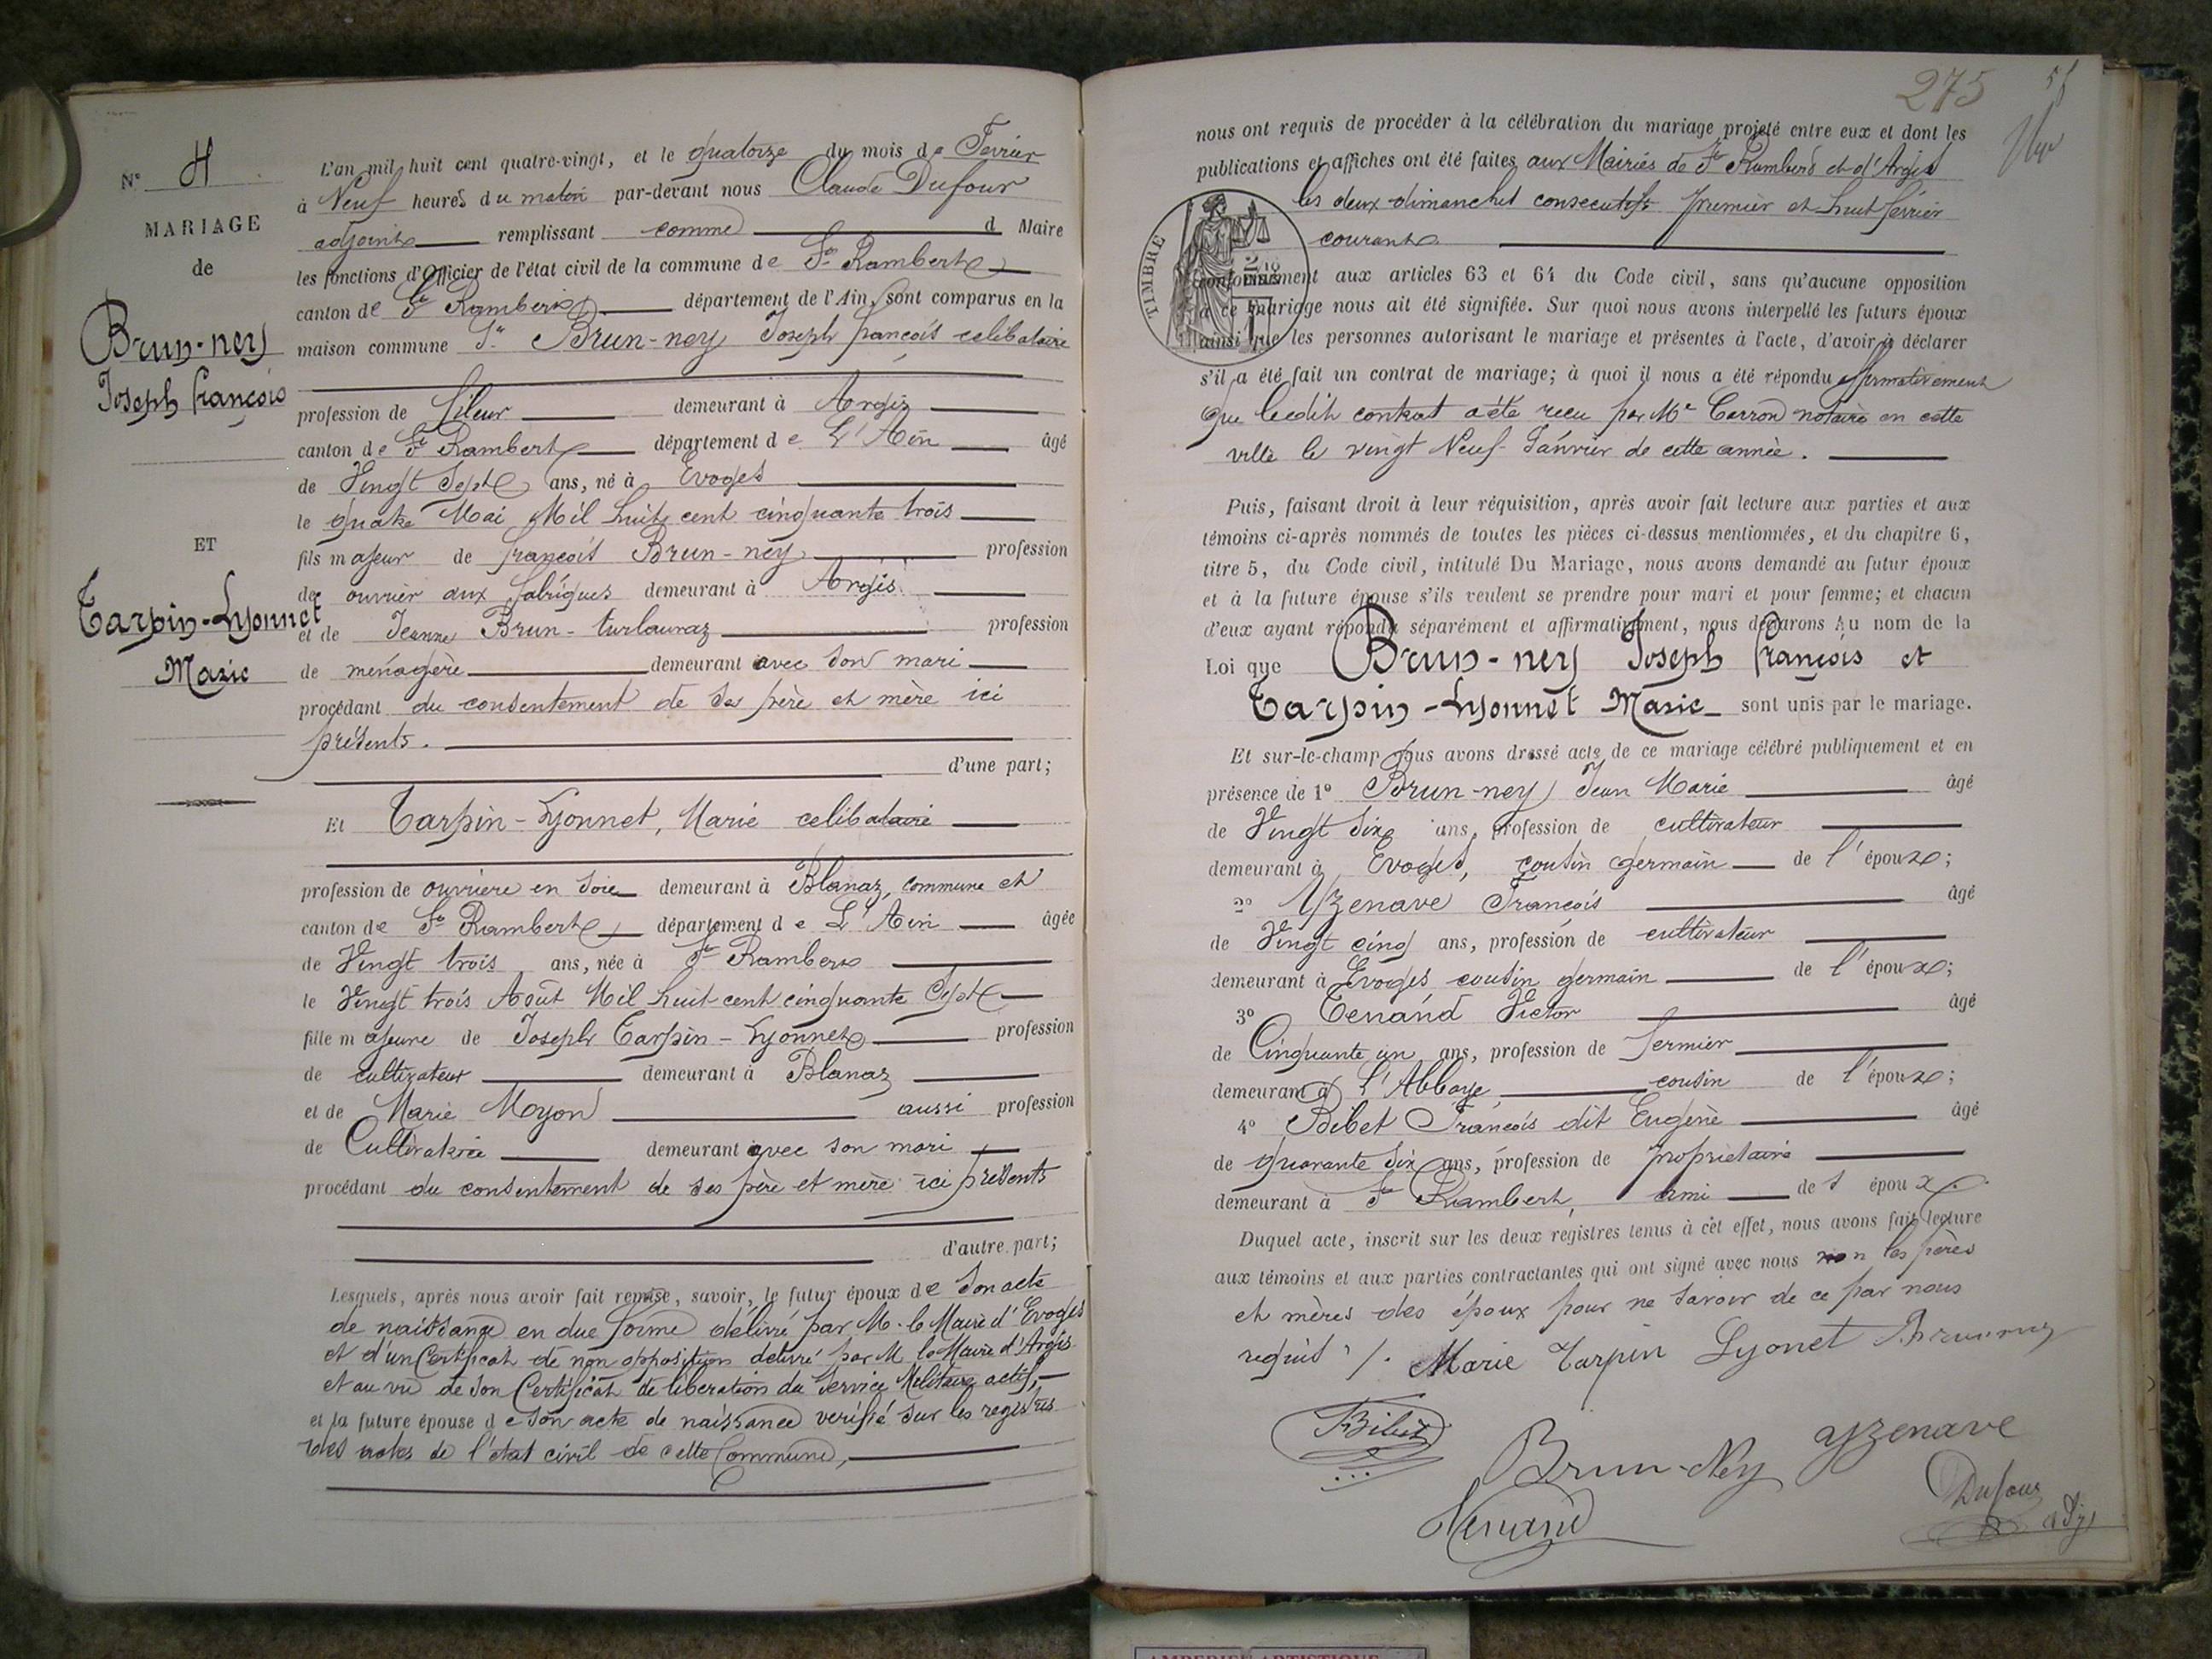 N° 4
MARIAGE
de
Brun-ney
Joseph françois
ET
Tarpin-Lyonnet
Marie
L'an mil huit cent quatre-vingt, et le quatorze du mois de Février
à Neuf heures du matin par-devant nous Claude Dufour
adjoint remplissant comme d Maire
les fonctions d'Officier de l'état civil de la commune de St Rambert
canton de St Rambert département de l'Ain, sont comparus en la
maison commune Sr Brun-ney Joseph françois celibataire
profession de fileur demeurant à Argis
canton de St Rambert département de L'Ain âgé
de Vingt Sept ans, né à Evoges
le quatre Mai Mil huit cent cinquante trois
fils majeur de françois Brun-ney profession
de ouvrier aux fabriques demeurant à Argis
et de Jeanne Brun-turlauraz profession
de menagère demeurant avec son mari
procédant du consentement de ses père et mère ici
présents.
d'une part;
Et Tarpin-Lyonnet, Marie celibataire
profession de ouvriere en soie demeurant à Blanaz, commune et
canton de St Rambert département de L'Ain âgée
de Vingt trois ans, née à St Rambert
le Vingt trois Août Mil huit cent cinquante Sept
fille majeure de Joseph Tarpin-Lyonnet profession
de cultivateur demeurant à Blanaz
et de Marie Moyon aussi profession
de Cultivatrice demeurant avec son mari
procédant du consentement de ses père et mère ici présents
d'autre part;
Lesquels, après nous avoir fait remise, savoir, le futur époux de son acte
de naissance en due forme délivré par M. le Maire d'Evoges
et d'un Certificat de non opposition délivré par M. le Maire d'Argis
et au vu de son Certificat de libération du Service Militaire actif,
et la future épouse de son acte de naissance verifié sur les registres
des actes de l'état civil de cette Commune,
275
nous ont requis de procéder à la célébration du mariage projeté entre eux et dont les
publications et affiches ont été faites aux Mairies de St Rambert et d'Argis
les deux dimanches consecutifs premier et huit février
courant
TIMBRE
conformément aux articles 63 et 64 du Code civil, sans qu'aucune opposition
à ce mariage nous ait été signifiée. Sur quoi nous avons interpellé les futurs époux
ainsi que les personnes autorisant le mariage et présentes à l'acte, d'avoir à déclarer
s'il a été fait un contrat de mariage; à quoi il nous a été répondu affirmativement
que ledit contrat a été recu par Me Carron notaire en cette
ville le vingt Neuf Janvier de cette année.
Puis, faisant droit à leur réquisition, après avoir fait lecture aux parties et aux
témoins ci-après nommés de toutes les pièces ci-dessus mentionnées, et du chapitre 6,
titre 5, du Code civil, intitulé Du Mariage, nous avons demandé au futur époux
et à la future épouse s'ils veulent se prendre pour mari et pour femme; et chacun
d'eux ayant répondu séparément et affirmativement, nous déclarons Au nom de la
Loi que Brun-ney Joseph françois et
Tarpin-Lyonnet Marie sont unis par le mariage.
Et sur-le-champ nous avons dressé acte de ce mariage célébré publiquement et en
présence de 1° Brun-ney Jean Marie âgé
de Vingt Six ans, profession de cultivateur
demeurant à Evoges, cousin germain de l'époux;
2° Yzenave François âgé
de Vingt cinq ans, profession de cultivateur
demeurant à Evoges cousin germain de l'époux;
3° Tenánd Victor âgé
de Cinquante un ans, profession de fermier
demeurant à L'Abbaye, cousin de l'époux;
4° Bibet François dit Eugène âgé
de quarante six ans, profession de proprietaire
demeurant à St Rambert, ami de l époux.
Duquel acte, inscrit sur les deux registres tenus à cet effet, nous avons fait lecture
aux témoins et aux parties contractantes qui ont signé avec nous non les pères
et mères des époux pour ne savoir de ce par nous
requis ./. Marie Tarpin Lyonet
Bibet
Brun-Ney
yzenave
Tenand
Dufour
adj